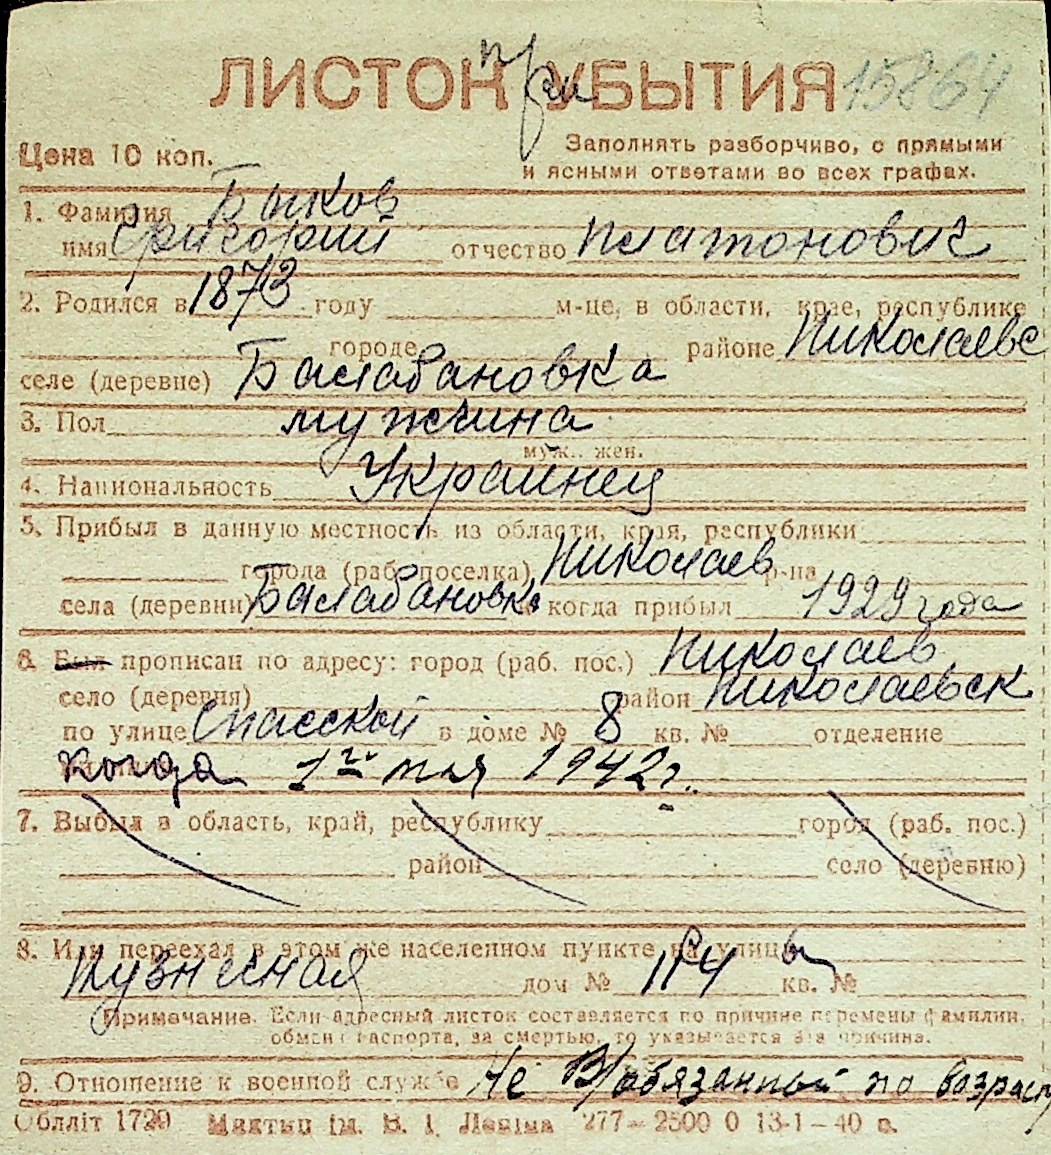 ЛИСТОК при УБЫТИЯ 15864
Цена 10 коп.
Заполнять разборчиво, с прямыми
и ясными ответами во всех графах.
1. Фамилия Быков
имя Григорий отчество Платонович
2. Родился в 1873 году м-це, в области, крае, республике
городе районе Николаевс
селе (деревне) Балабановка
3. Пол мужчина
муж. жен.
4. Национальность Украинец
5. Прибыл в данную местность из области, края, республики
города (раб. поселка) Николаев р-на
села (деревни) Балабановка когда прибыл 1929 года
6. Был прописан по адресу: город (раб. пос.) Николаев
село (деревня) район Николаевск
по улице Спасской в доме № 8 кв. № отделение
когда 1942 г.
7. Выбыл в область, край, республику город (раб. пос.)
район село (деревню)
8. Или переехал в этом же населенном пункте на улицы
дом № кв. №
Примечание. Если адресный листок составляется по причине перемены фамилии,
обмена паспорта, за смертью, то указывается эта причина.
9. Отношение к военной службе Не В/обязанный по возраст
Облліт 1729 ім. В. І. Леніна 277—2500 0 13-1—40 р.